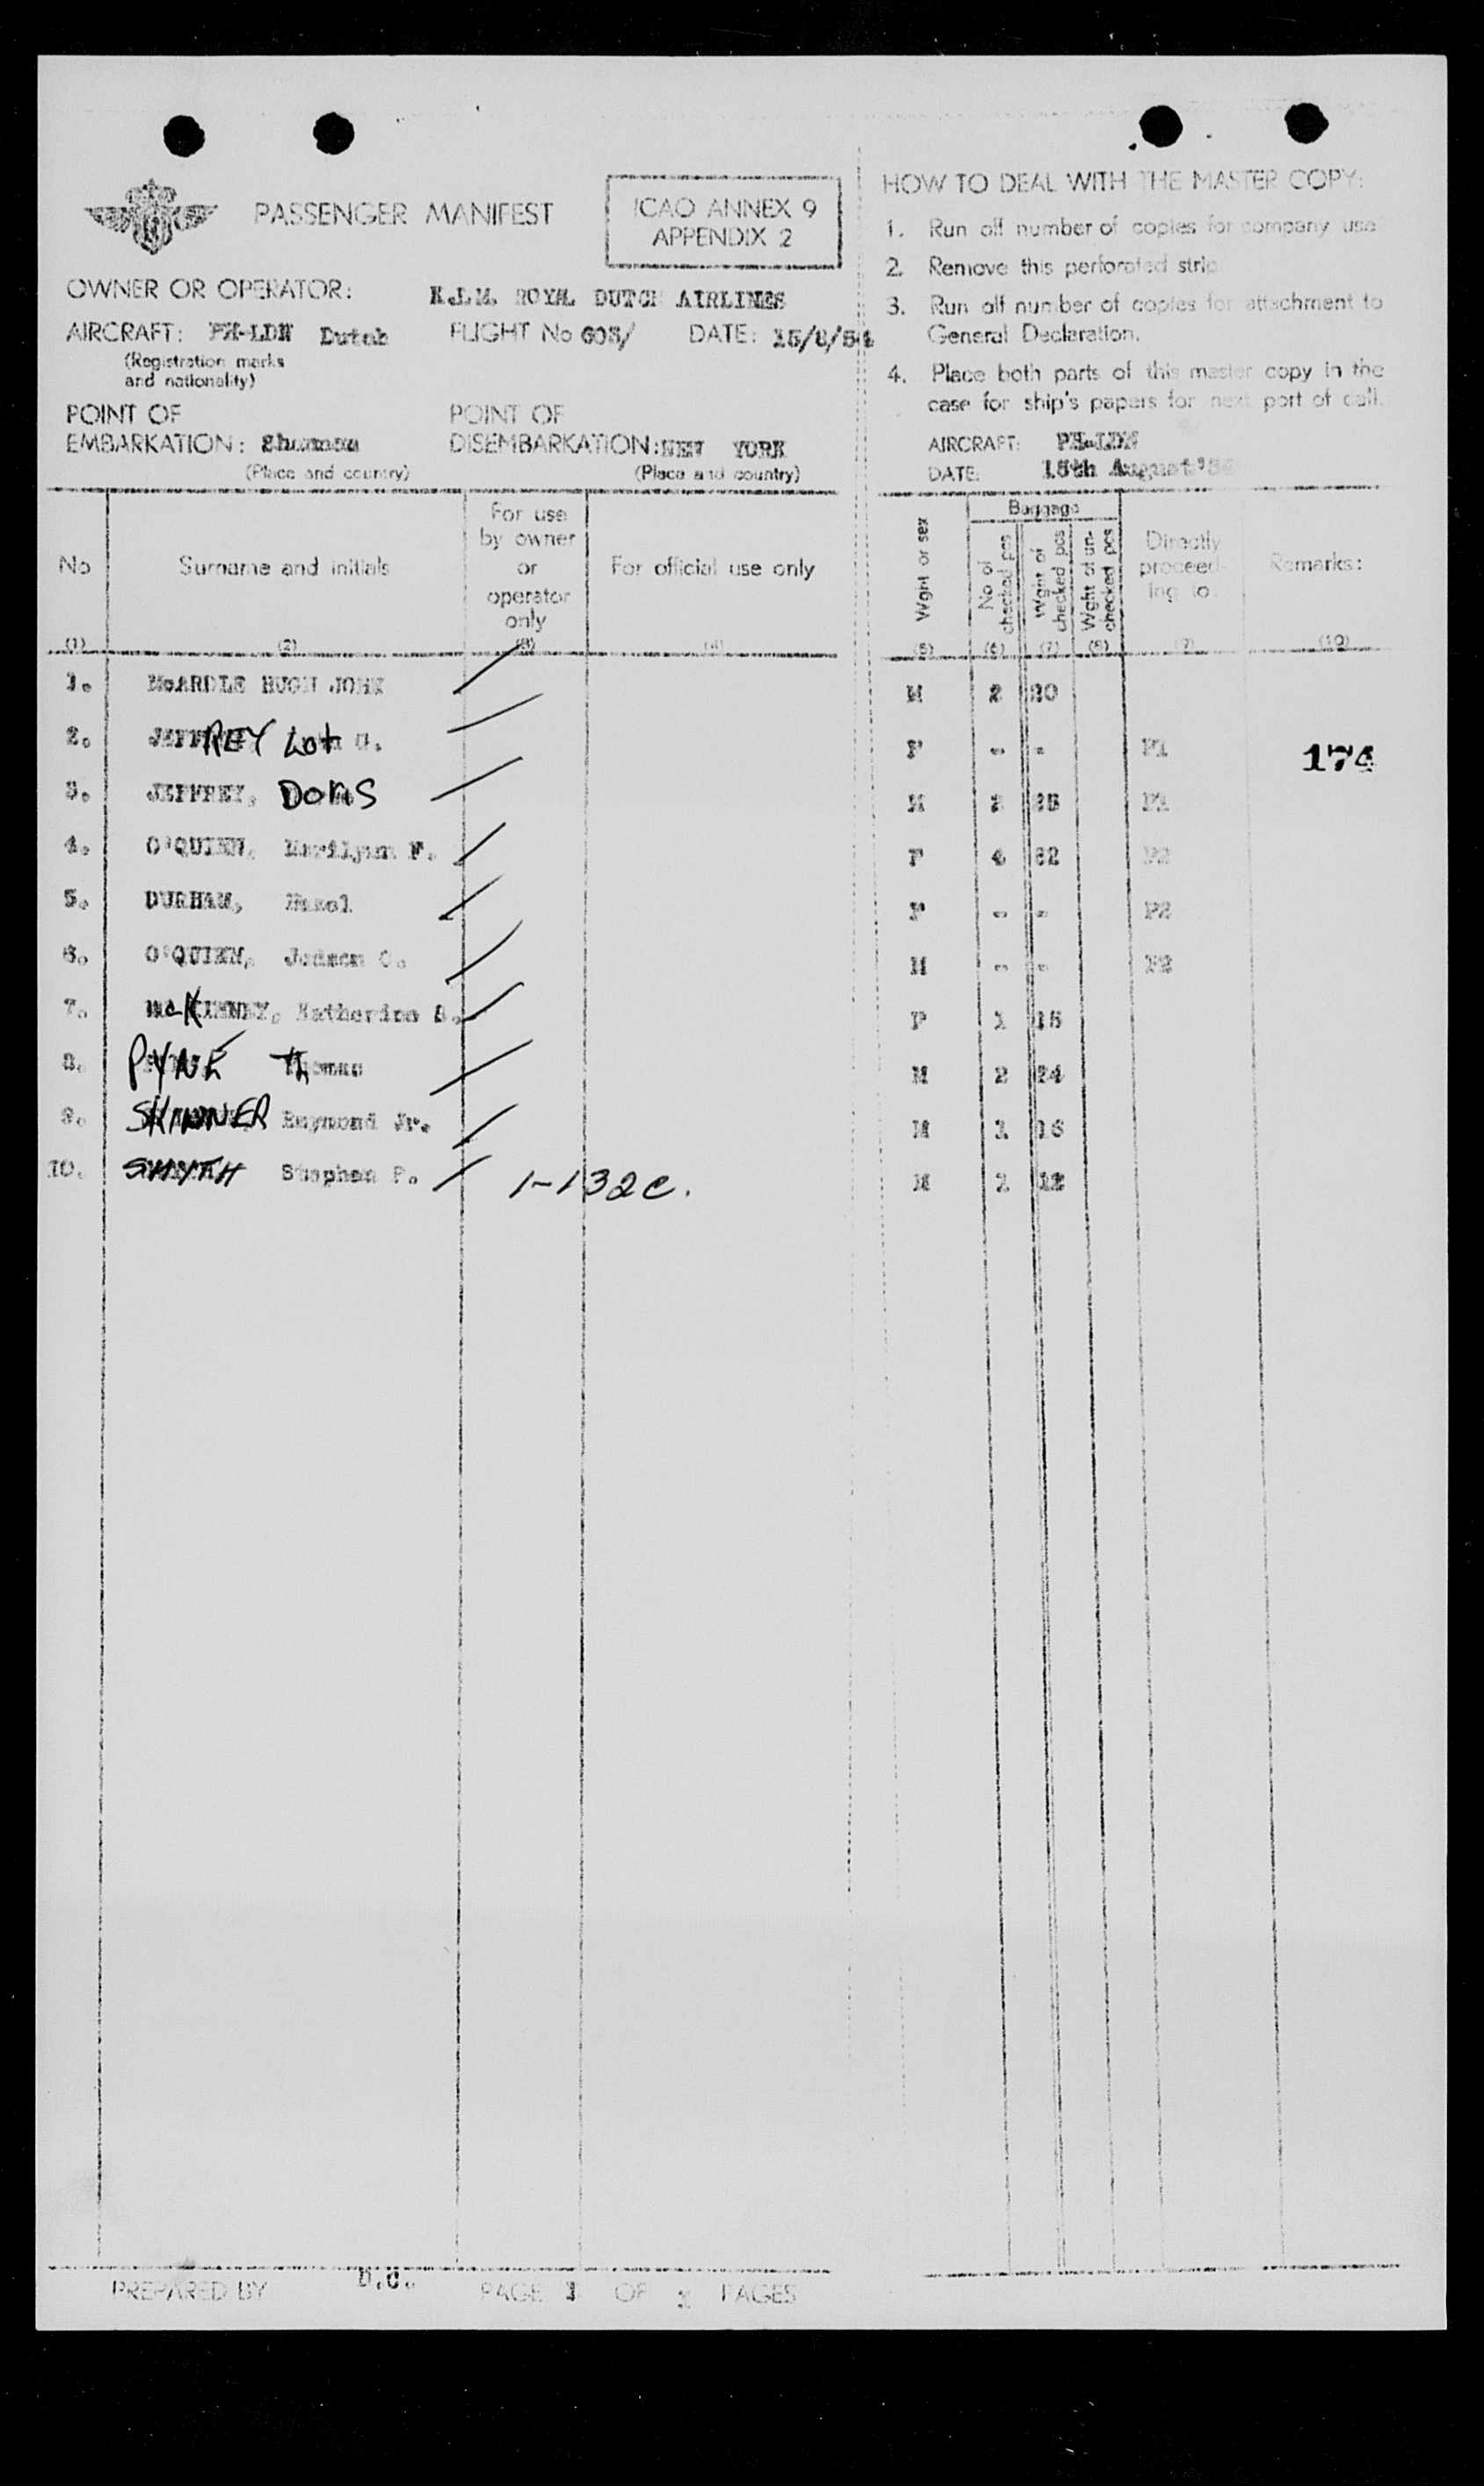 PASSENGER MANIFEST
ICAO ANNEX 9
APPENDIX 2
OWNER OR OPERATOR: K.L.M. ROYAL DUTCH AIRLINES
AIRCRAFT: PH-LDN Dutch FLIGHT No 603/ DATE: 15/8/54
(Registration marks
and nationality)
POINT OF
EMBARKATION: Shannon
(Place and country)
POINT OF
DISEMBARKATION: NEW YORK
(Place and country)
No
(1)
Surname and initials
(2)
For use
by owner
or
operator
only
(3)
For official use only
(4)
1. McARDLE HUGH JOHN
2. JEFFREY
3. JEFFREY, DORIS
4. O'QUIEN, Marilynn F.
5. DURHAM, Hazel
6. O'QUIEN, Judson C.
7. McKINNEY, Katherine
8. PYNE Thomas
9. SKINNER Raymond Jr.
10. SMYTH Stephen P. 1-132c.
PREPARED BY D.C. PAGE 1 OF PAGES
HOW TO DEAL WITH THE MASTER COPY:
1. Run off number of copies for company use
2. Remove this perforated strip
3. Run off number of copies for attachment to
General Declaration.
4. Place both parts of this master copy in the
case for ship's papers for next port of call.
AIRCRAFT: PH-LDN
DATE: 15th August '54
Wght or sex
(5)
Baggage
No of
checked pcs
(6)
Wght of
checked pcs
(7)
Wght of un-
checked pcs
(8)
Directly
proceed-
ing to
(9)
Remarks:
(10)
M 2 20
F - - P1 174
M P1
F 4 62 P2
F - - P2
M - - P2
F 1 15
M 2 24
M 1 16
M 12